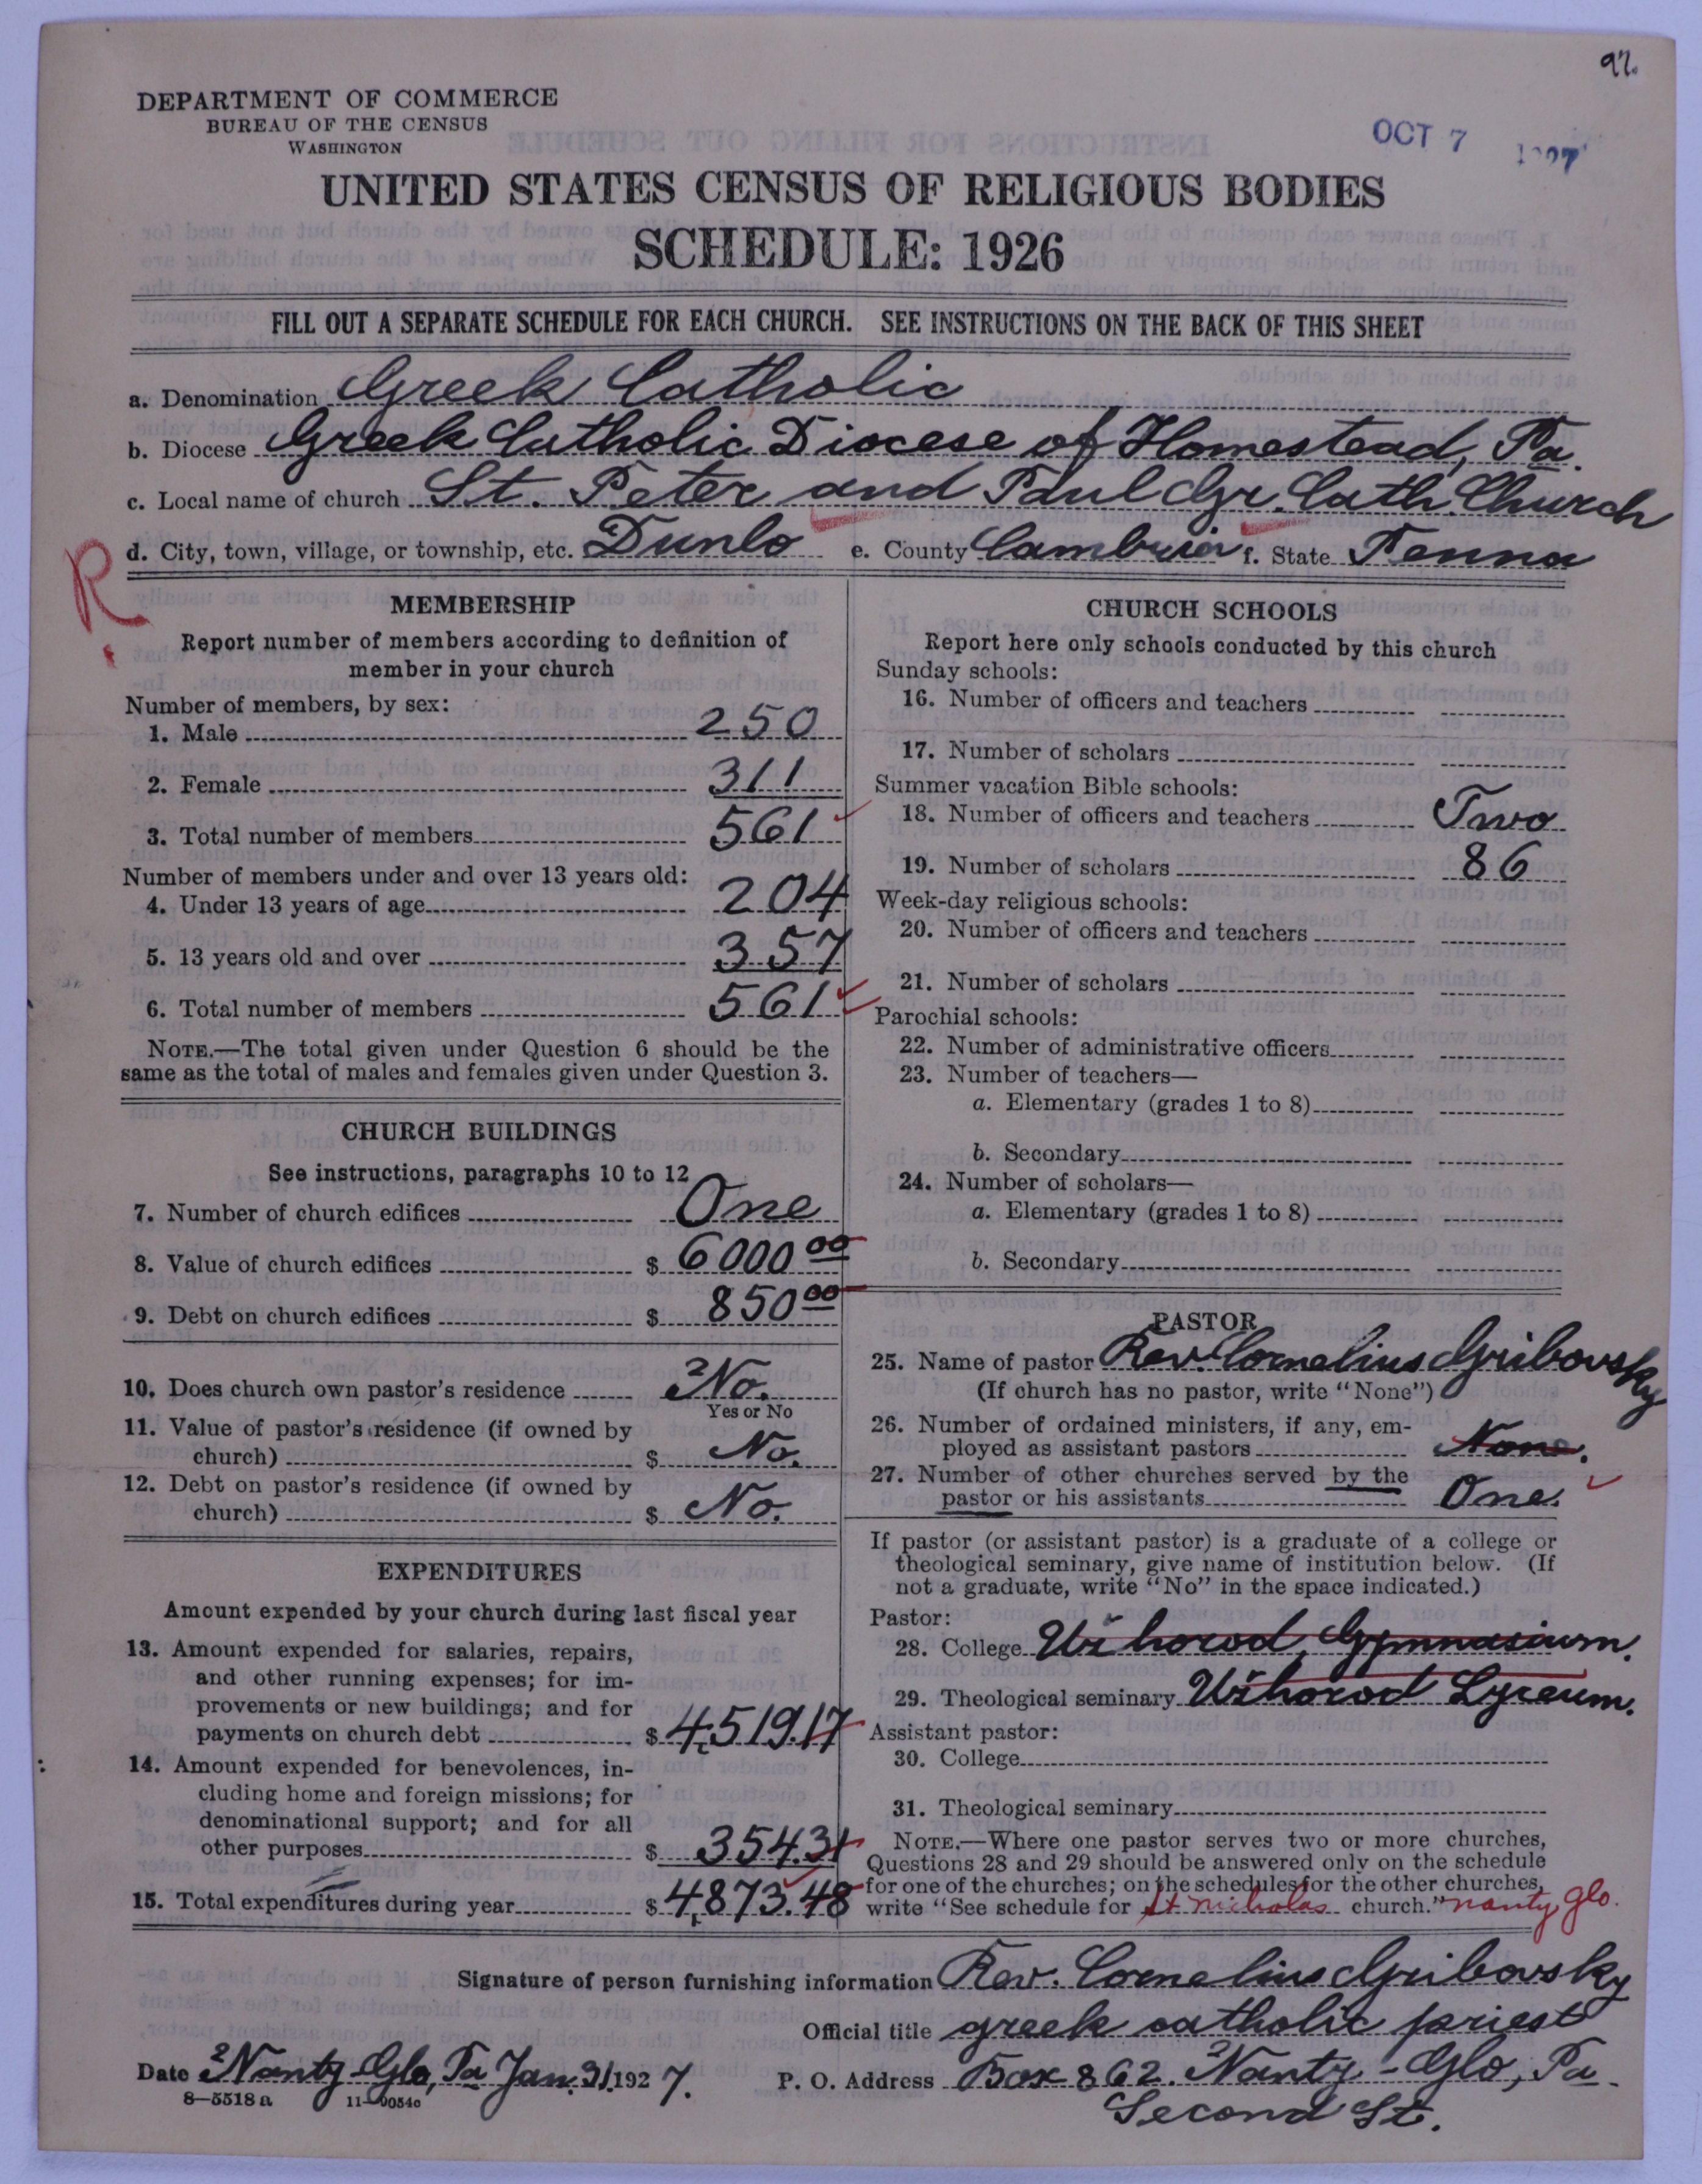 97.
DEPARTMENT OF COMMERCE
BUREAU OF THE CENSUS
WASHINGTON
OCT 7 1927
UNITED STATES CENSUS OF RELIGIOUS BODIES
SCHEDULE: 1926
FILL OUT A SEPARATE SCHEDULE FOR EACH CHURCH. SEE INSTRUCTIONS ON THE BACK OF THIS SHEET
a. Denomination Greek Catholic
b. Diocese Greek Catholic Diocese of Homestead, Pa.
c. Local name of church St. Peter and Paul Gr. Cath. Church
d. City, town, village, or township, etc. Dunlo e. County Cambria f. State Penna
R.
MEMBERSHIP
Report number of members according to definition of
member in your church
Number of members, by sex:
1. Male 250
2. Female 311
3. Total number of members 561
Number of members under and over 13 years old:
4. Under 13 years of age 204
5. 13 years old and over 357
6. Total number of members 561
NOTE.—The total given under Question 6 should be the
same as the total of males and females given under Question 3.
CHURCH BUILDINGS
See instructions, paragraphs 10 to 12
7. Number of church edifices One
8. Value of church edifices $ 6000 00
9. Debt on church edifices $ 850 00
10. Does church own pastor's residence No.
Yes or No
11. Value of pastor's residence (if owned by
church) $ No.
12. Debt on pastor's residence (if owned by
church) $ No.
EXPENDITURES
Amount expended by your church during last fiscal year
13. Amount expended for salaries, repairs,
and other running expenses; for im-
provements or new buildings; and for
payments on church debt $ 4,519.17
14. Amount expended for benevolences, in-
cluding home and foreign missions; for
denominational support; and for all
other purposes $ 354.31
15. Total expenditures during year $ 4,873.48
CHURCH SCHOOLS
Report here only schools conducted by this church
Sunday schools:
16. Number of officers and teachers
17. Number of scholars
Summer vacation Bible schools:
18. Number of officers and teachers Two
19. Number of scholars 86
Week-day religious schools:
20. Number of officers and teachers
21. Number of scholars
Parochial schools:
22. Number of administrative officers
23. Number of teachers—
a. Elementary (grades 1 to 8)
b. Secondary
24. Number of scholars—
a. Elementary (grades 1 to 8)
b. Secondary
PASTOR
25. Name of pastor Rev. Cornelius Gribovsky
(If church has no pastor, write "None")
26. Number of ordained ministers, if any, em-
ployed as assistant pastors None.
27. Number of other churches served by the
pastor or his assistants One.
If pastor (or assistant pastor) is a graduate of a college or
theological seminary, give name of institution below. (If
not a graduate, write "No" in the space indicated.)
Pastor:
28. College Užhorod, Gymnasium.
29. Theological seminary Užhorod Lyceum.
Assistant pastor:
30. College
31. Theological seminary
NOTE.—Where one pastor serves two or more churches,
Questions 28 and 29 should be answered only on the schedule
for one of the churches; on the schedules for the other churches,
write "See schedule for St Nicholas church." Nanty Glo.
Signature of person furnishing information Rev. Cornelius Gribovsky
Official title greek catholic priest
Date Nanty-Glo, Pa Jan. 31. 1927. P. O. Address Box 862. Nanty-Glo, Pa.
8—5518 a 11—9054c Second St.